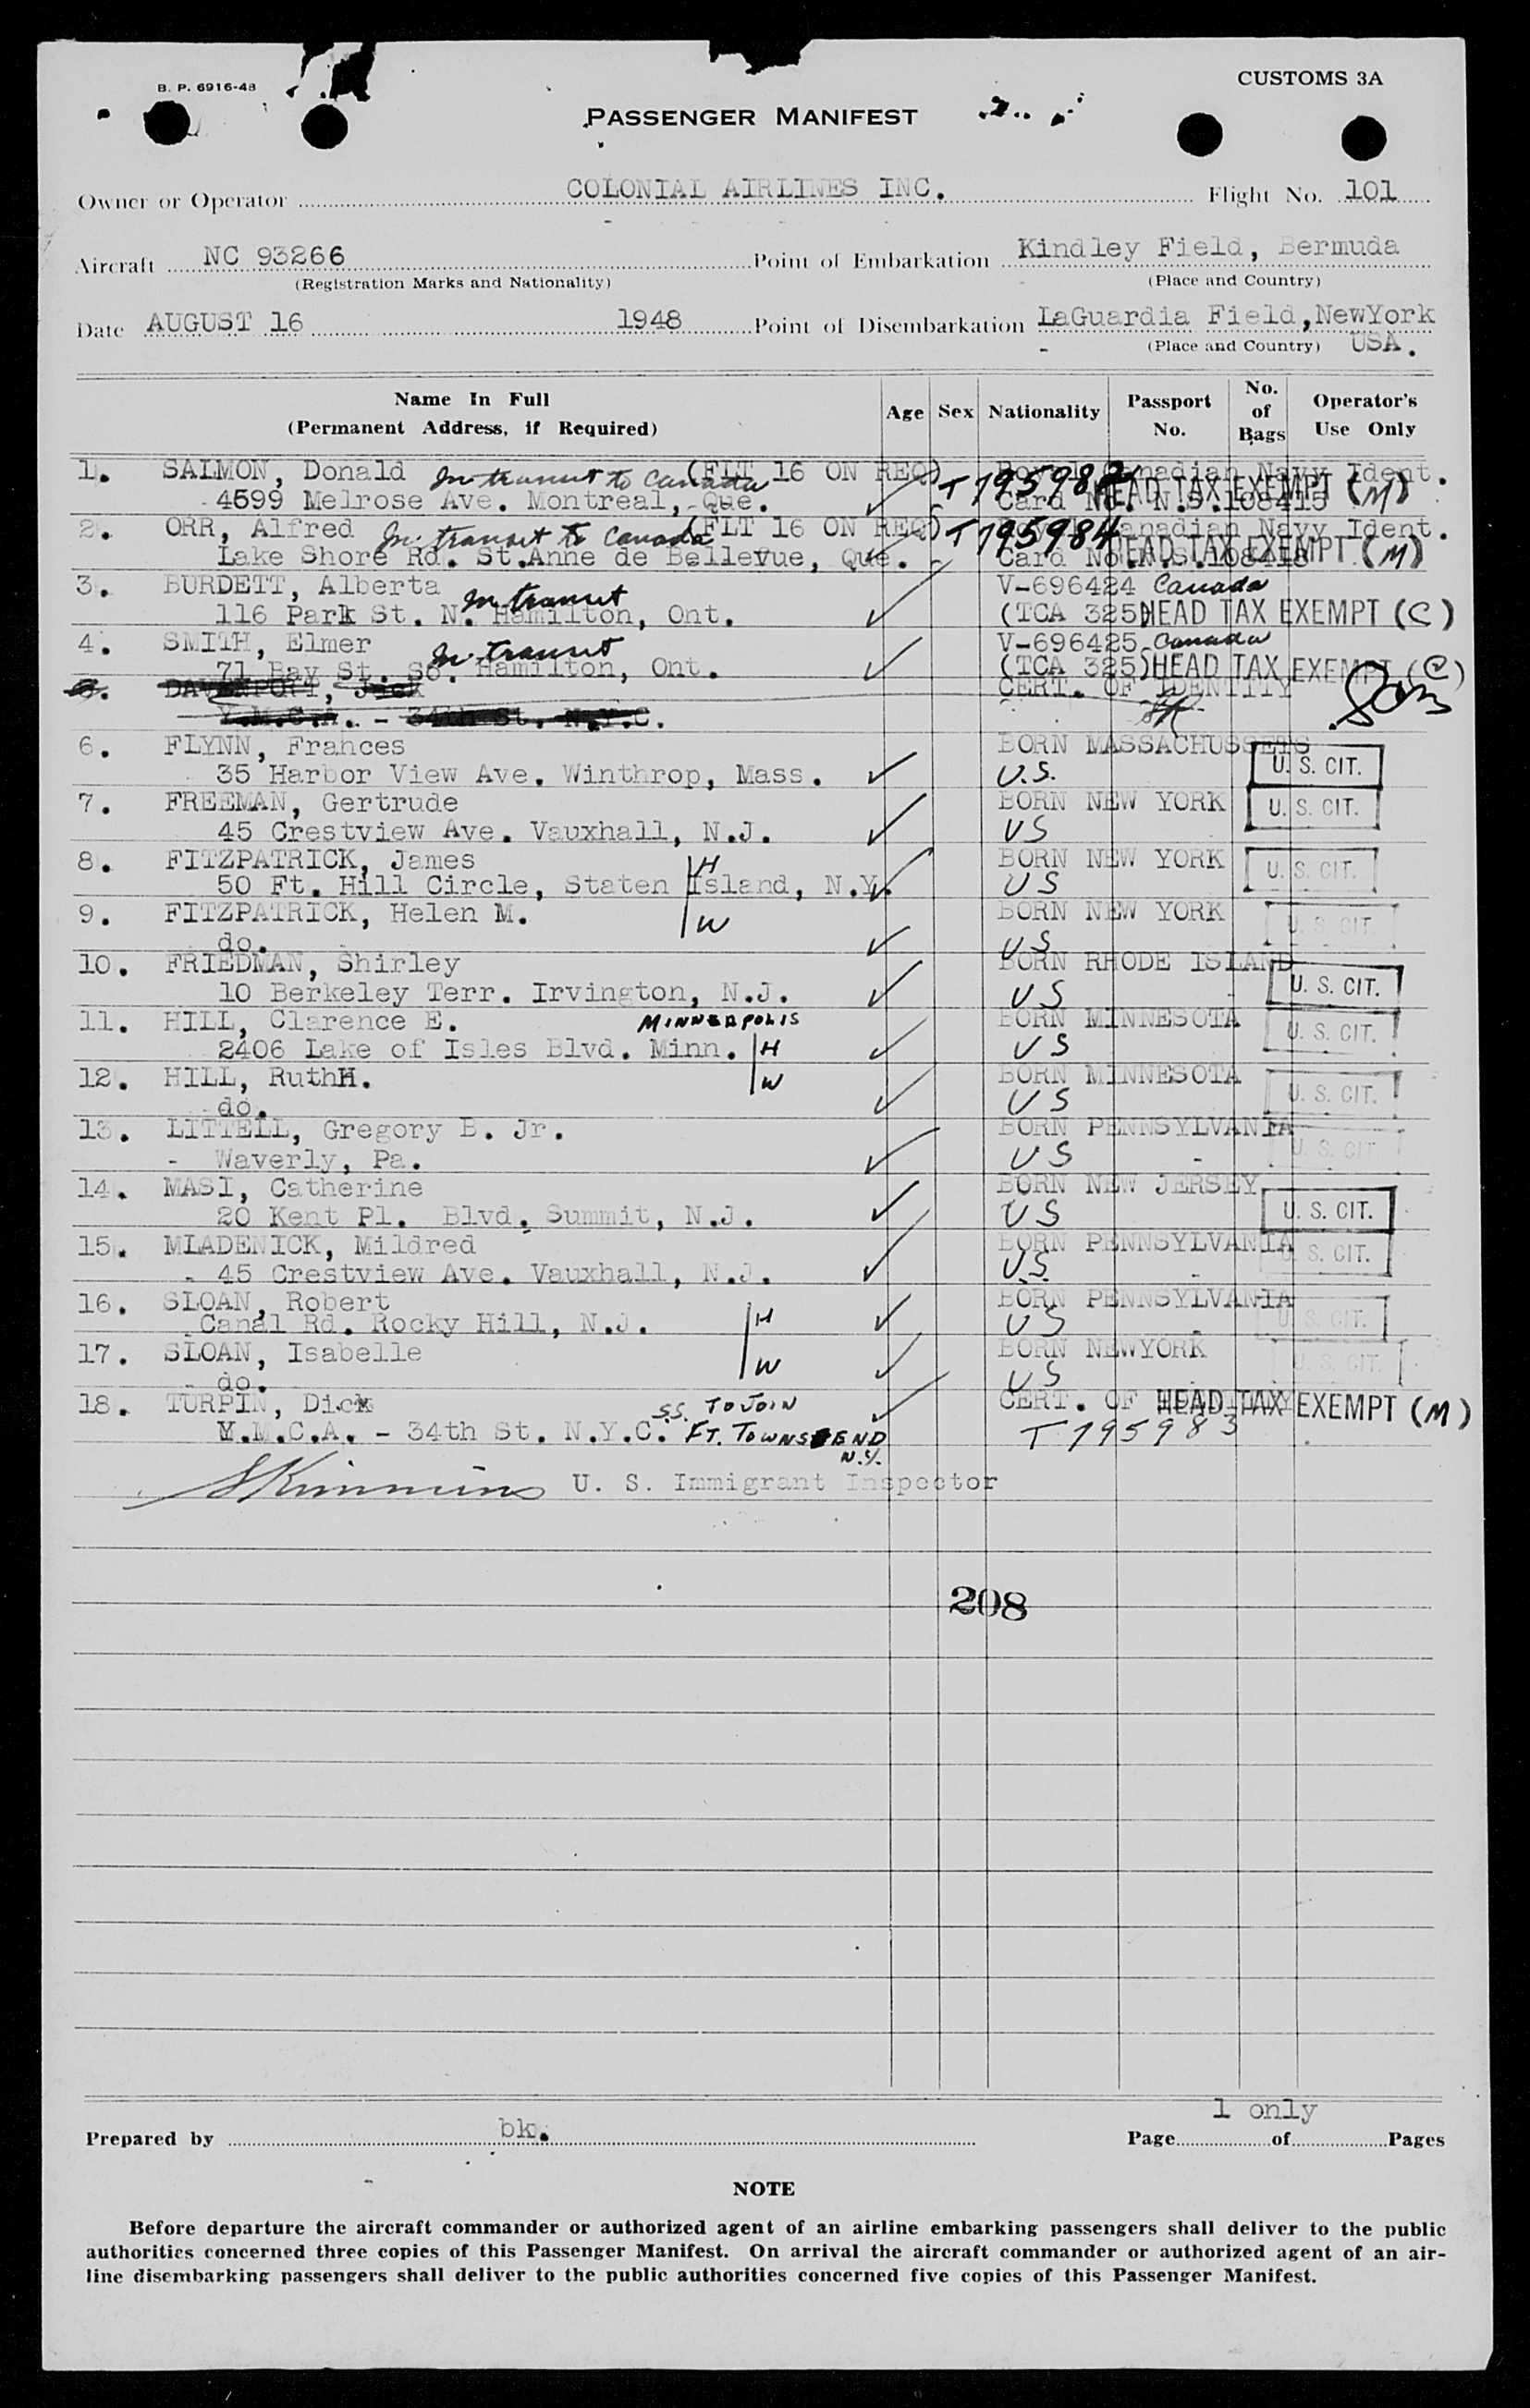 B. P. 6916-48
CUSTOMS 3A
PASSENGER MANIFEST
Owner or Operator COLONIAL AIRLINES INC. Flight No. 101
Aircraft NC 93266 Point of Embarkation Kindley Field, Bermuda
(Registration Marks and Nationality) (Place and Country)
Date AUGUST 16 1948 Point of Disembarkation LaGuardia Field, NewYork
(Place and Country) USA.
Name In Full Age Sex Nationality Passport No. No. of Bags Operator's Use Only
(Permanent Address, if Required)
1. SALMON, Donald In transit to Canada (FLT 16 ON REQ) Royal Canadian Navy Ident.
4599 Melrose Ave. Montreal, Que. T 195982 Card No. N.S.108415 HEAD TAX EXEMPT (M)
2. ORR, Alfred In transit to Canada (FLT 16 ON REQ) T 195984 Canadian Navy Ident.
Lake Shore Rd. St.Anne de Bellevue, Que. Card No. N.S.108418 HEAD TAX EXEMPT (M)
3. BURDETT, Alberta In transit V-696424 Canada
116 Park St. N. Hamilton, Ont. (TCA 325) HEAD TAX EXEMPT (C)
4. SMITH, Elmer In transit V-696425 Canada
71 Bay St. So. Hamilton, Ont. (TCA 325) HEAD TAX EXEMPT (C)
5. DAVENPORT, Jack CERT. OF IDENTITY
Y.M.C.A. - 34th St. N.Y.C.
6. FLYNN, Frances BORN MASSACHUSSETS
35 Harbor View Ave. Winthrop, Mass. U.S. U. S. CIT.
7. FREEMAN, Gertrude BORN NEW YORK U. S. CIT.
45 Crestview Ave. Vauxhall, N.J. US
8. FITZPATRICK, James H BORN NEW YORK U. S. CIT.
50 Ft. Hill Circle, Staten Island, N.Y. US
9. FITZPATRICK, Helen M. W BORN NEW YORK U. S. CIT.
do. US
10. FRIEDMAN, Shirley BORN RHODE ISLAND
10 Berkeley Terr. Irvington, N.J. US U. S. CIT.
11. HILL, Clarence E. MINNEAPOLIS BORN MINNESOTA U. S. CIT.
2406 Lake of Isles Blvd. Minn. H US
12. HILL, RuthH. W BORN MINNESOTA U. S. CIT.
do. US
13. LITTELL, Gregory B. Jr. BORN PENNSYLVANIA
- Waverly, Pa. US U. S. CIT
14. MASI, Catherine BORN NEW JERSEY
20 Kent Pl. Blvd. Summit, N.J. US U. S. CIT.
15. MLADENICK, Mildred BORN PENNSYLVANIA S. CIT.
45 Crestview Ave. Vauxhall, N.J. U.S.
16. SLOAN, Robert H BORN PENNSYLVANIA
Canal Rd. Rocky Hill, N.J. US U. S. CIT.
17. SLOAN, Isabelle W BORN NEWYORK U. S. CIT.
do. US
18. TURPIN, Dick S.S. TO JOIN CERT. OF HEAD TAX EXEMPT (M)
Y.M.C.A. - 34th St. N.Y.C. FT. TOWNSEND N.Y. T 195983
SKimmins U. S. Immigrant Inspector
208
Prepared by bk. Page 1 only of Pages
NOTE
Before departure the aircraft commander or authorized agent of an airline embarking passengers shall deliver to the public
authorities concerned three copies of this Passenger Manifest. On arrival the aircraft commander or authorized agent of an air-
line disembarking passengers shall deliver to the public authorities concerned five copies of this Passenger Manifest.